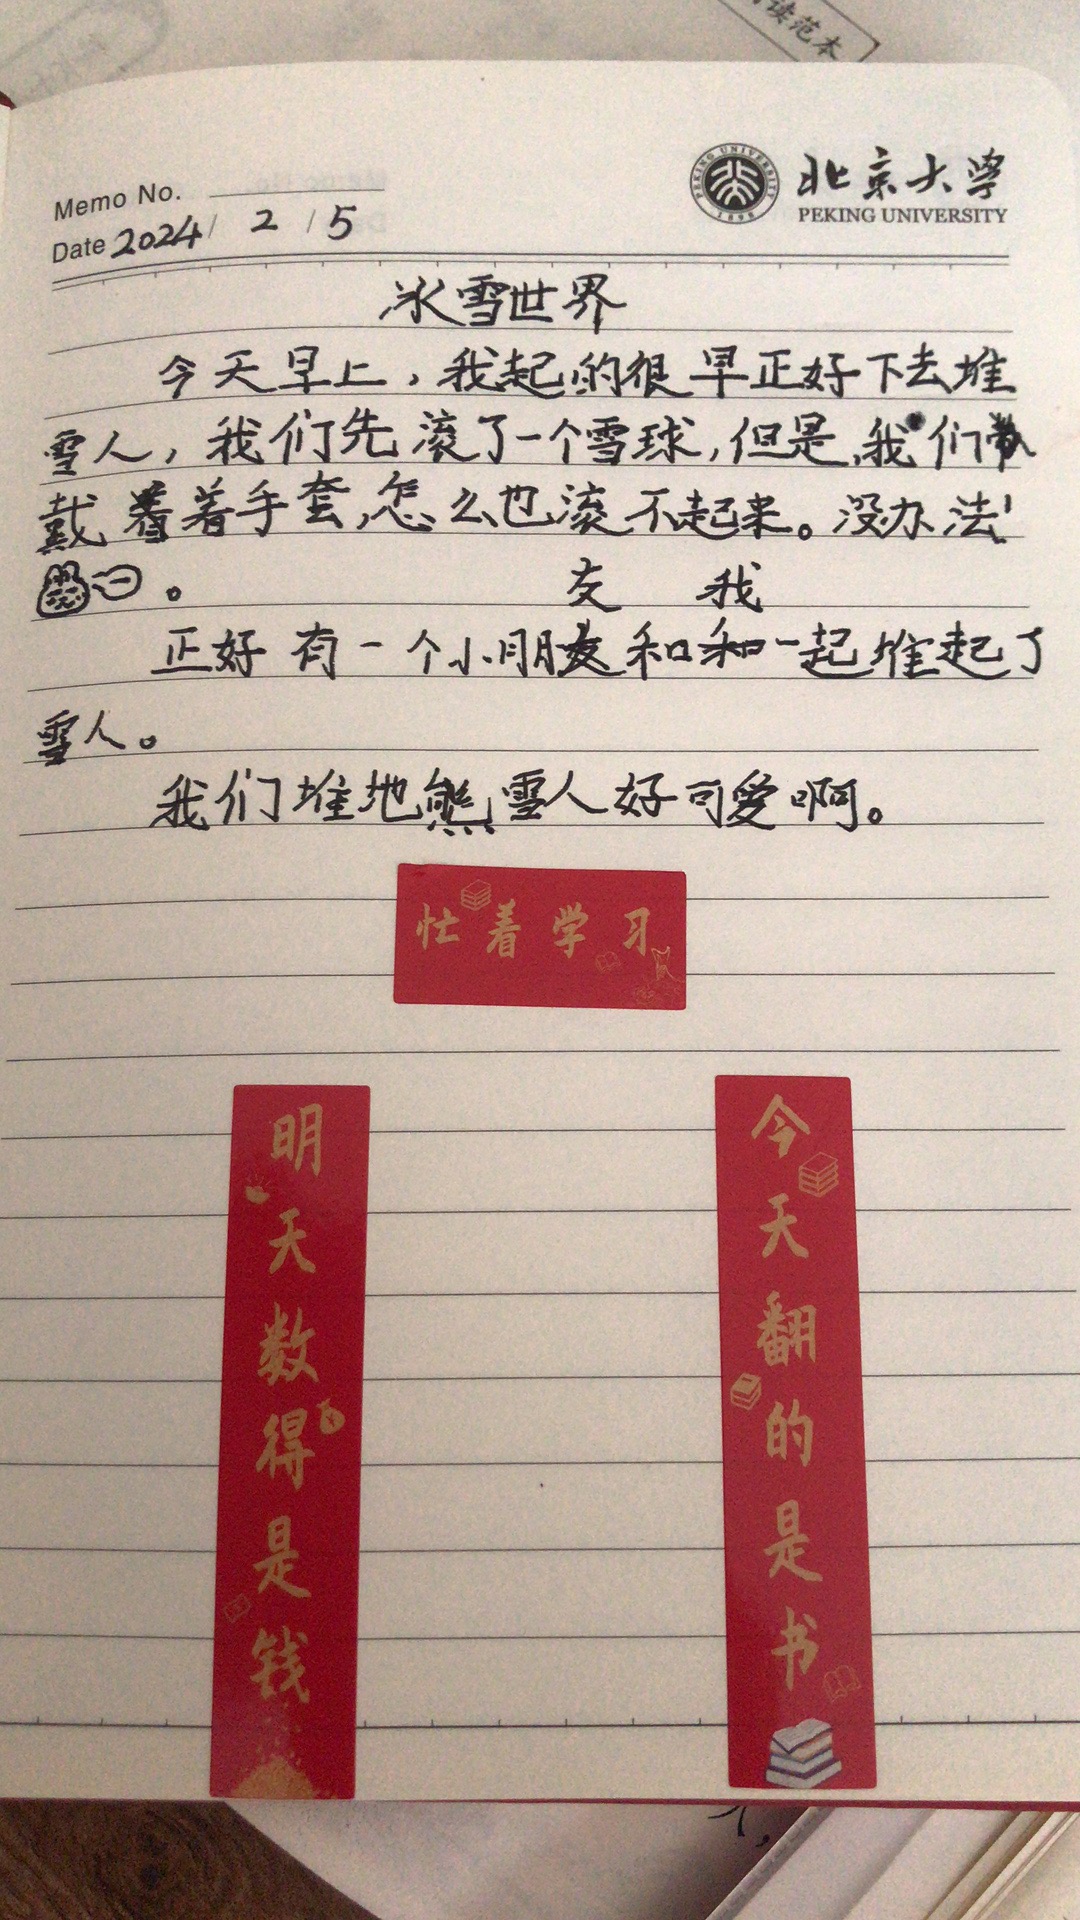 阅读范本
北京大学
PEKING UNIVERSITY
PEKING UNIVERSITY
1898
Memo No.
Date 2024 / 2 / 5
冰雪世界
今天早上，我起的很早正好下去堆
雪人，我们先滚了一个雪球，但是，我们
戴着着手套，怎么也滚不起来。没办法！
。
友 我
正好有一个小朋友和和一起堆起了
雪人。
我们堆地熊雪人好可爱啊。
忙着学习
明天数得是钱
今天翻的是书